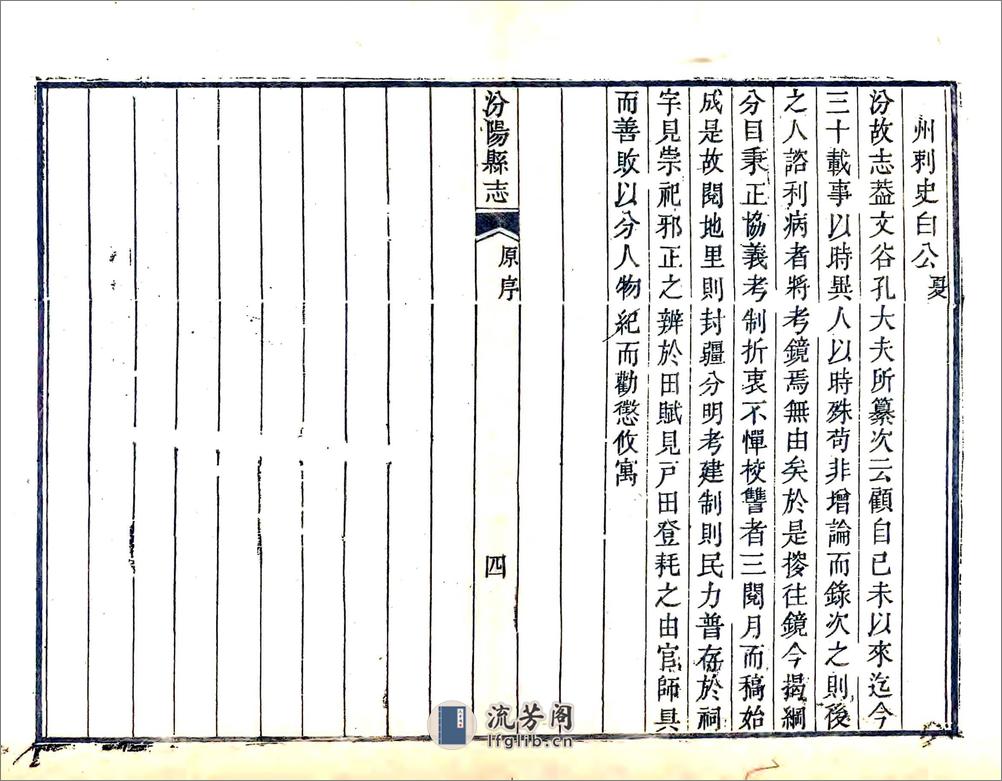 州刺史白公夏
汾故志葢文谷孔大夫所纂次云顧自己未以來迄今
三十載事以時異人以時殊苟非增論而錄次之則後
之人諮利病者將考鏡焉無由矣於是掇往鏡今揭綱
分目秉正協義考制折衷不憚校讐者三閱月而稿始
成是故閱地里則封疆分明考建制則民力普存於祠
宇見祟祀邪正之辨於田賦見戸田登耗之由官師具
而善敗以分人物紀而勸懲攸寓
汾陽縣志
原序
四
流芳阁
lfglib.cn